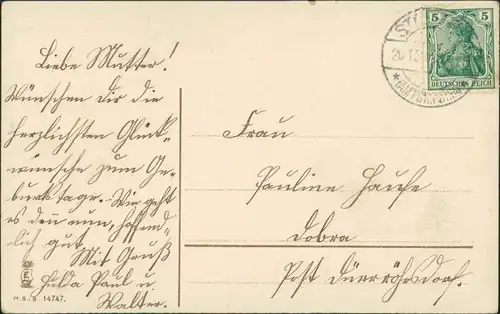 Liebe Mutter!
Wünschen Dir die
herzlichsten Glück-
wünsche zum Ge-
burtstage. Wie geht
es den nun, hoffend-
lich gut.
Mit Gruß
Hulda Paul u.
Walter.
M.S.i.B 14747.
5 5
DEUTSCHES REICH
Frau
Pauline Haufe
Dobra
Post Dürröhrsdorf.